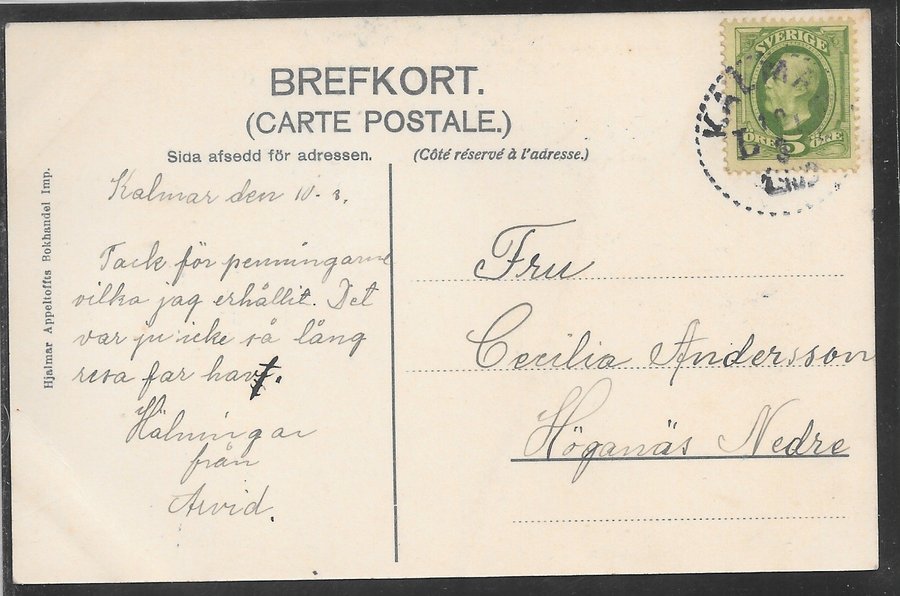 BREFKORT.
(CARTE POSTALE.)
Sida afsedd för adressen. (Côté réservé à l'adresse.)
SVERIGE
5
ÖRE ÖRE
KALMAR
Hjalmar Appeltoffts Bokhandel Imp.
Kalmar den 10
Tack för penningarne
vilka jag erhållit. Det
var ju icke så lång
resa far haft.
Hälningar
från
Arvid.
Fru
Cecilia Andersson
Höganäs Nedre